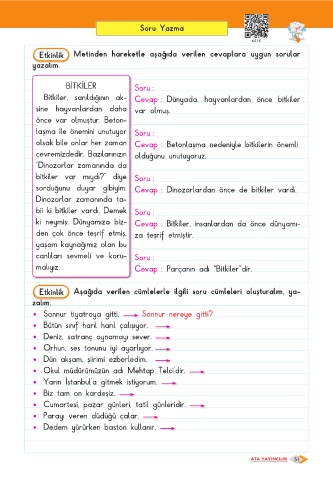 Soru Yazma
Etkinlik Metinden hareketle aşağıda verilen cevaplara uygun sorular
yazalım.
BİTKİLER
Bitkiler, sanıldığının ak-
sine hayvanlardan daha
önce var olmuştur. Beton-
laşma ile önemini unutuyor
olsak bile onlar her zaman
çevremizdedir. Bazılarınızın
"Dinozorlar zamanında da
bitkiler var mıydı?" diye
sorduğunu duyar gibiyim.
Dinozorlar zamanında ta-
bii ki bitkiler vardı. Demek
ki neymiş: Dünyamıza biz-
den çok önce teşrif etmiş,
yaşam kaynağımız olan bu
canlıları sevmeli ve koru-
malıyız.
Soru :
Cevap : Dünyada, hayvanlardan önce bitkiler
var olmuş.
Soru :
Cevap : Betonlaşma nedeniyle bitkilerin önemli
olduğunu unutuyoruz.
Soru :
Cevap : Dinozorlardan önce de bitkiler vardı.
Soru :
Cevap : Bitkiler, insanlardan da önce dünyamı-
za teşrif etmiştir.
Soru :
Cevap : Parçanın adı "Bitkiler"dir.
Etkinlik Aşağıda verilen cümlelerle ilgili soru cümleleri oluşturalım, ya-
zalım.
• Sonnur tiyatroya gitti. Sonnur nereye gitti?
• Bütün sınıf harıl harıl çalışıyor.
• Deniz, satranç oynamayı sever.
• Orhun, ses tonunu iyi ayarlıyor.
• Dün akşam, şiirimi ezberledim.
• Okul müdürümüzün adı Mehtap Telci'dir.
• Yarın İstanbul'a gitmek istiyorum.
• Biz tam on kardeşiz.
• Cumartesi, pazar günleri, tatil günleridir.
• Parayı veren düdüğü çalar.
• Dedem yürürken baston kullanır.
ATA YAYINCILIK 51